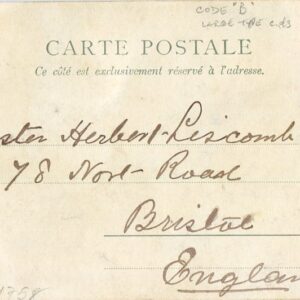 CODE "B"
LARGE TYPE
CARTE POSTALE
Ce côté est exclusivement réservé à l'adresse.
ster Herbert Liscomb
78 Nort- Road
Bristol
Englan